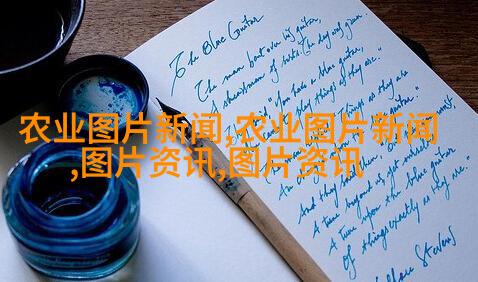 The Blue Guitar
The man bent over his guitar,
A shearsman of sorts. The day was green.
"You have a blue guitar,
play things as they are."
things as they are
guitar."
And they said
must,
A tune beyond us, yet ourselves,
A tune upon the blue guitar
Of things exactly as they are."
Wallace Stevens
农业图片新闻,农业图片新闻
,图片资讯,图片资讯